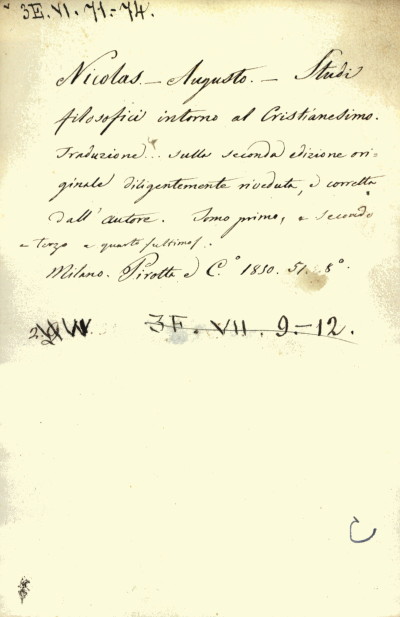 3E. VI. 71-74.
Nicolas - Augusto. - Studi
filosofici intorno al Cristianesimo.
Traduzione... sulla seconda edizione ori-
ginale diligentemente riveduta, e corretta
dall' autore. Tomo primo, e secondo
e terzo e quarto (ultimo).
Milano. Pirotta e C.° 1850. 51. 8°.
3F. VII. 9-12.